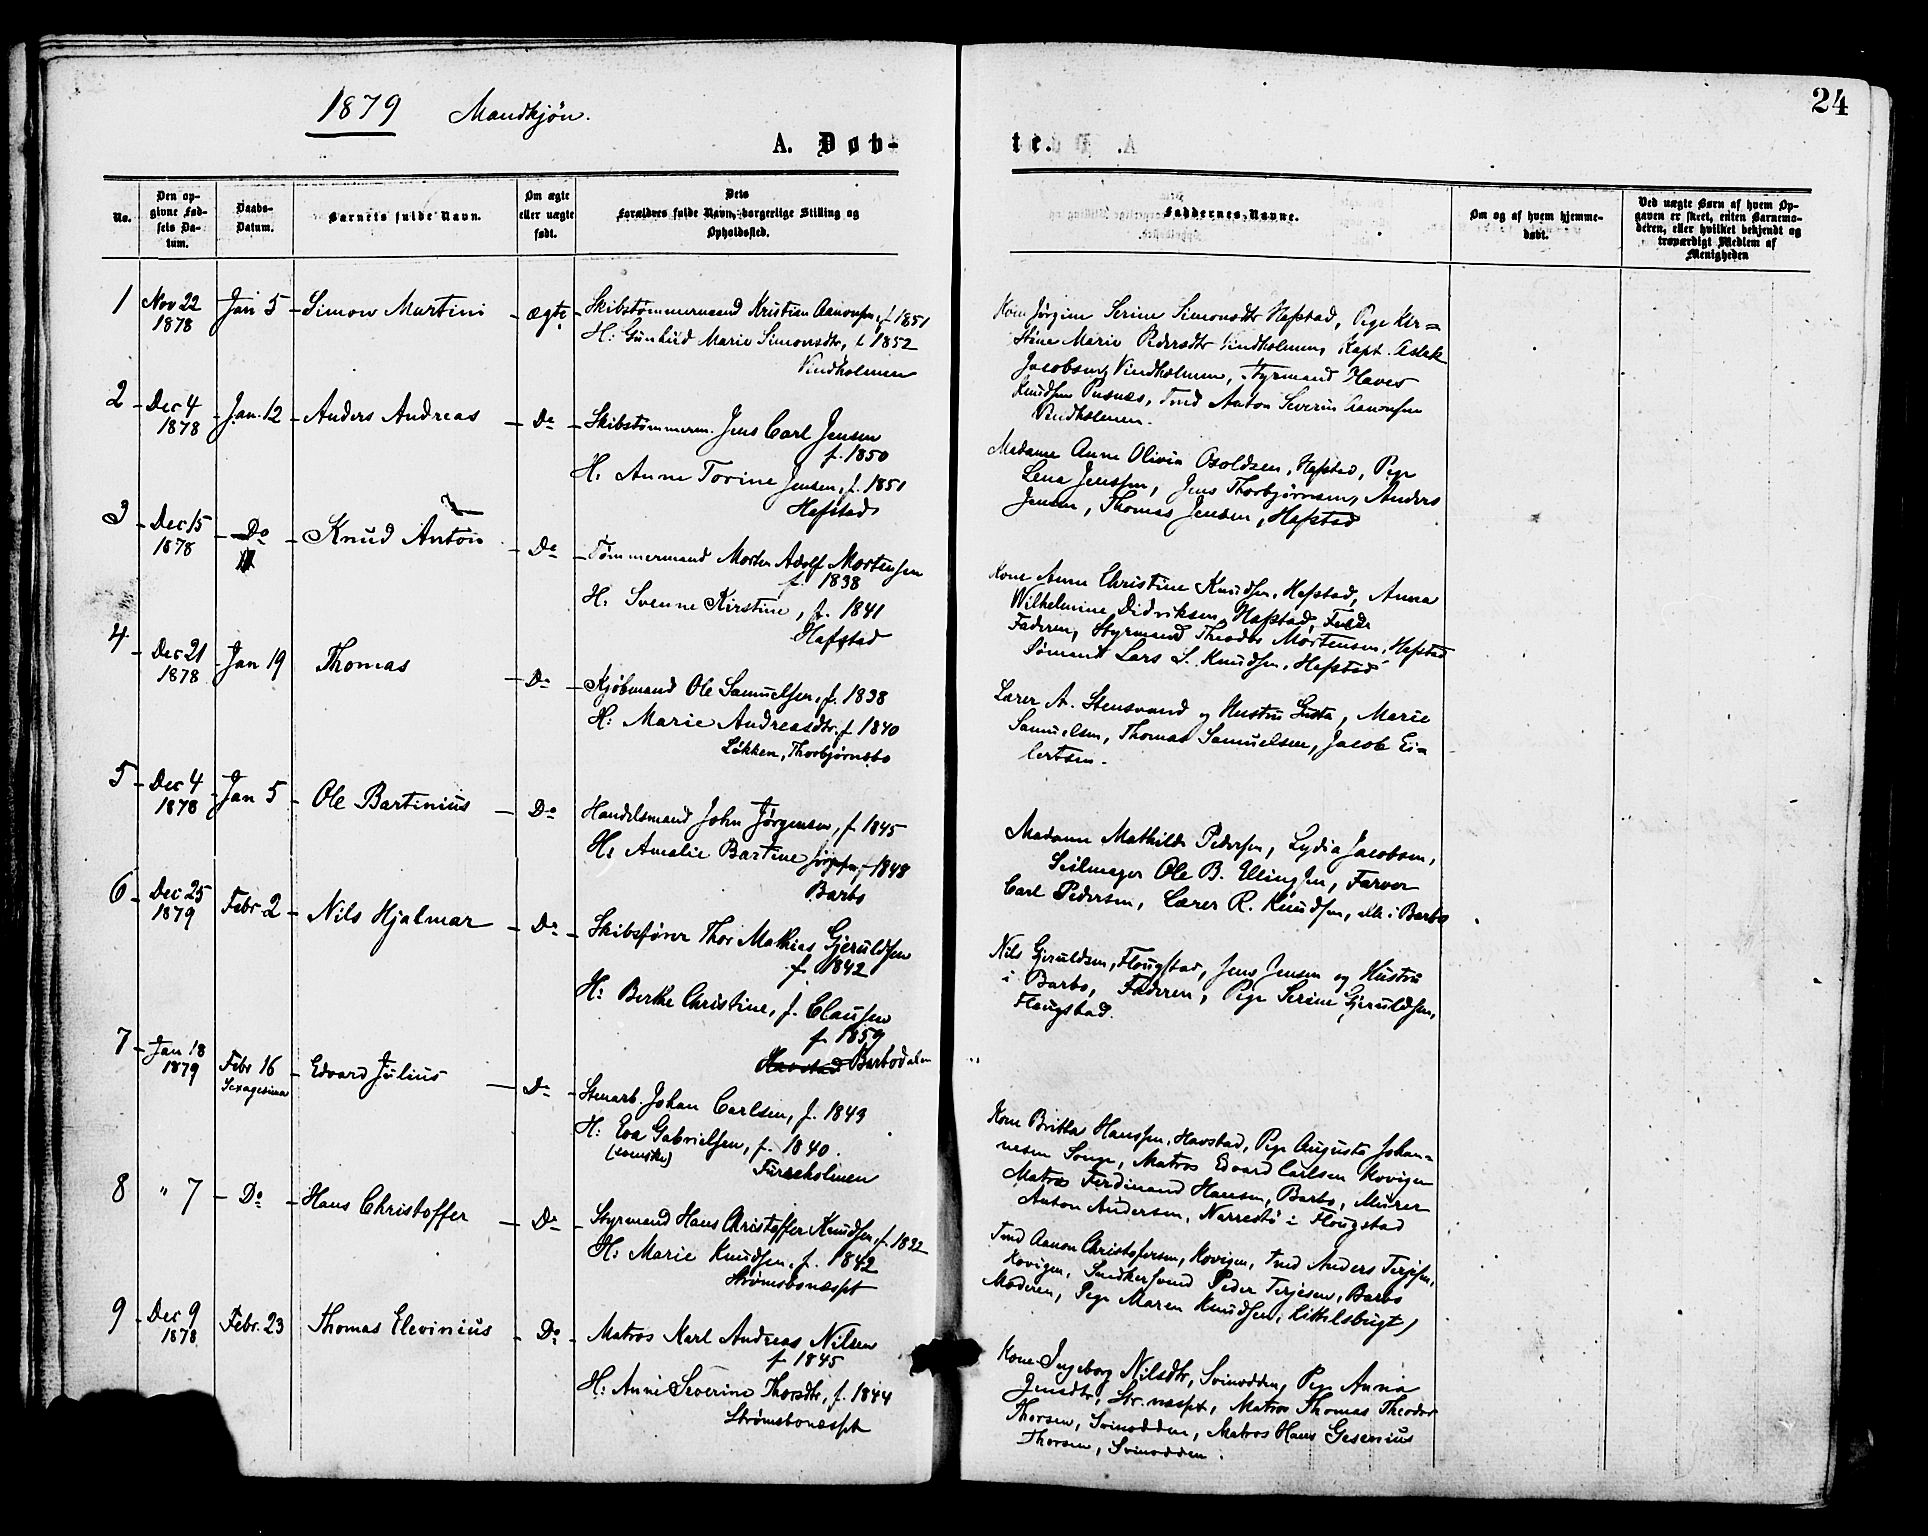 1879 Mandkjøn.
24
A. Døb-
te.
No.
Den op-
givne Fød-
sels Da-
tum.
Daabs-
Datum.
Barnets fulde Navn.
Om ægte
eller uægte
født.
Dets
Forældres fulde Navn, borgerlige Stilling og
Opholdssted.
Faddernes Navne.
Om og af hvem hjemme-
døbt.
Ved uægte Børn af hvem Op-
gaven er skeet, enten Barnemo-
deren, eller hvilket bekjendt og
troværdigt Medlem af
Menigheden
1 Nov 22
1878
Jan 5 Simon Martini ægte
Skibstømmermand Kristian Aanonsen, f. 1851
H: Gunhild Marie Simonsdtr, f. 1852
Vindholmen
Kone Jørgine Serine Simonsdtr Hafstad, Pige Kir=
stine Marie Pedersdtr Vindholmen, Kapt. Aslak
Jacobsen, Vindholmen, Styrmand
Knudsen Pusnes, Tmd Anton Severin Aanonsen
Vindholmen.
2 Dec 4
1878
Jan. 12 Anders Andreas Do
Skibstømmerm. Jens Carl Jensen
f. 1850
H. Anne Torine Jensen, f. 1851
Hafstad
Madame Anne Olivia Osoldsen, Hafstad, Pige
Lena Jenssen, Jens Thorbjørnsen, Anders
Jensen, Thomas Jensen, Hafstad
3 Dec 15
1878
Do Knud Anton Do
Tømmermand Morten Adolf Mortensen
f. 1838
H. Svenne Kirstine, f. 1841
Hafstad
Kone Anne Christine Knudsen, Hafstad, Anna
Wilhelmine Didriksen, Hafstad,
Faderen, Styrmand Theodor Mortensen, Hafstad
Sømand Lars L. Knudsen, Hafstad
4 Dec 21
1878
Jan 19 Thomas Do
Kjøbmand Ole Samuelsen, f. 1838
H: Marie Andreasdtr. f 1840
Løkken, Thorbjørnsbo
Lærer A. Stensvand og Hustru Gusta, Marie
Samuelsen, Thomas Samuelsen, Jacob Ei=
lertsen.
5 Dec 4
1878
Jan 5 Ole Bartinius Do
Handelsmand John Jørgensen, f. 1845
H: Amalie Bartine Jørgensen, f. 1848
Barbo
Madame Mathilde Pedersen, Lydia Jacobsen,
Seilmager Ole B. Ellingsen, Farver
Carl Pedersen, Lærer R. Knudsen, alle i Barbo
6 Dec 25
1879
Febr 2 Nils Hjalmar Do
Skibsfører Thor Mathias Gjeruldsen
f. 1842
H: Berthe Christine, f. Clausen
f. 1859
Havstad Barbodalen
Nils Gjeruldsen, Flougstad, Jens Jensen og Hustru
i Barbo, Faderen, Pige Serine Gjeruldsen,
Flougstad.
7 Jan 18
1879
Febr 16
Sexagesima
Edvard Julius Do
Stenarb. Johan Carlsen, f. 1849
H: Eva Gabrielsen, f. 1840.
(svenske)
Furreholmen
Kone Britta Hanssen, Havstad, Pige Augusta Johan=
nesen Songe, Matros Edvard Carlsen Kovigen
Matros Ferdinand Hansen, Barbo, Murer
Anton Andersen, Narrestø i Flougstad
8 " 7 Do Hans Christoffer Do
Styrmand Hans Christoffer Knudsen, f. 1832
H: Marie Knudsen, f. 1842
Strømsbonæsset
Tmd Aanon Christofersen, Kovigen, Tmd Anders Terjesen,
Kovigen, Snedkersvend Peder Terjesen, Barbo
Moderen, Pige Maren Knudsen, Kittelsbugt)
9 Dec 9
1878
Febr. 23 Thomas Elevinius Do
Matros Karl Andreas Nilsen
f. 1845
H: Anne Severine Thorsdtr, f. 1844
Strømsbonæsset
Kone Ingeborg Nilsdtr, Svinodden, Pige Anna
Jensdtr, Str.næsset, Matros Thomas Theodor
Thorsen, Svinodden, Matros Hans Gesenius
Thorsen, Svinodden.